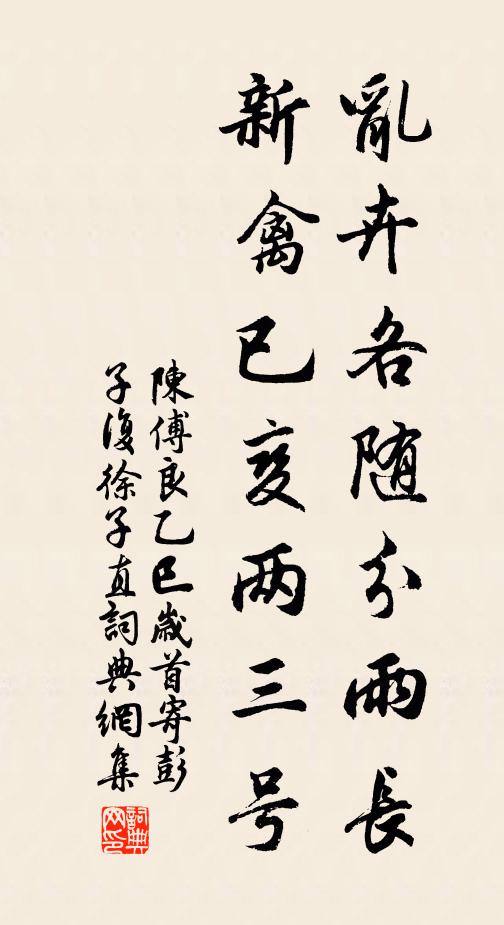 亂卉各随分兩長
新禽已变两三号
陳傅良乙巳歲首寄彭
子復徐子直詞典網集
詞典网印